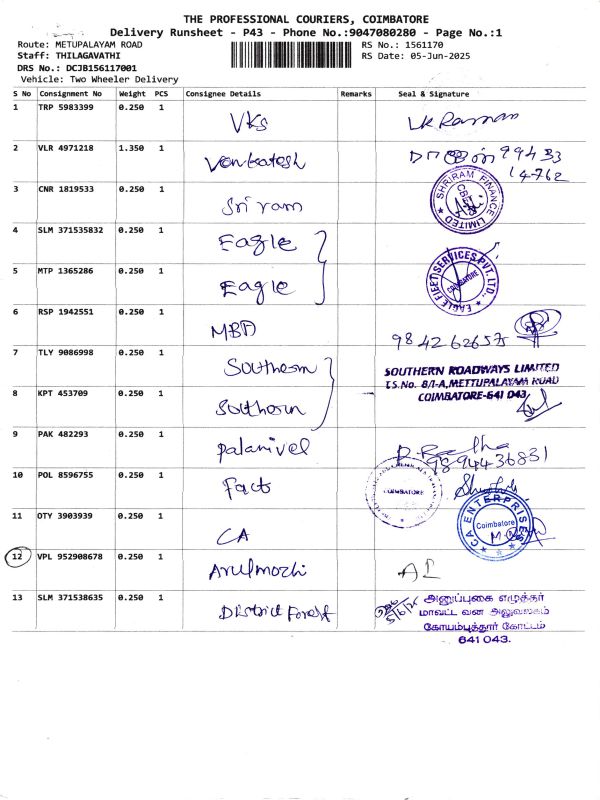 THE PROFESSIONAL COURIERS, COIMBATORE
Delivery Runsheet - P43 - Phone No.:9047080280 - Page No.:1
Route: METUPALAYAM ROAD
RS No.: 1561170
Staff: THILAGAVATHI
RS Date: 05-Jun-2025
DRS No.: DCJB156117001
Vehicle: Two Wheeler Delivery
S No Consignment No Weight PCS Consignee Details Remarks Seal & Signature
1 TRP 5983399 0.250 1 VKs
2 VLR 4971218 1.350 1 Venkatesh 99433
14762
3 CNR 1819533 0.250 1 Sriram SHRIRAM FINANCE LIMITED CBE
4 SLM 371535832 0.250 1 Eagle
5 MTP 1365286 0.250 1 Eagle EAGLE FLEET SERVICES PVT. LTD., COIMBATORE
6 RSP 1942551 0.250 1 MBD
7 TLY 9086998 0.250 1 Southern SOUTHERN ROADWAYS LIMITED
T.S.No. 8/1-A, METTUPALAYAM ROAD
8 KPT 453709 0.250 1 Southern COIMBATORE-641 043.
9 PAK 482293 0.250 1 Palanivel 9894436831
10 POL 8596755 0.250 1 Fact COIMBATORE
11 OTY 3903939 0.250 1 CA CA ENTERPRISES Coimbatore
12 VPL 952908678 0.250 1 Arulmozhi
13 SLM 371538635 0.250 1 District Forest 5/6/25 அனுப்புகை எழுத்தர்
மாவட்ட வன அலுவலகம்
கோயம்புத்தூர் கோட்டம்
641 043.